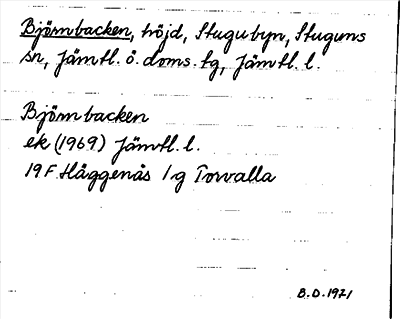 Björnbacken, höjd, Stugubyn, Stuguns
sn, Jämtl. ö. doms. tg, Jämtl. l.
Björnbacken
ek (1969) Jämtl. l.
19 F Häggenås 1 g Torvalla
B.D. 1971